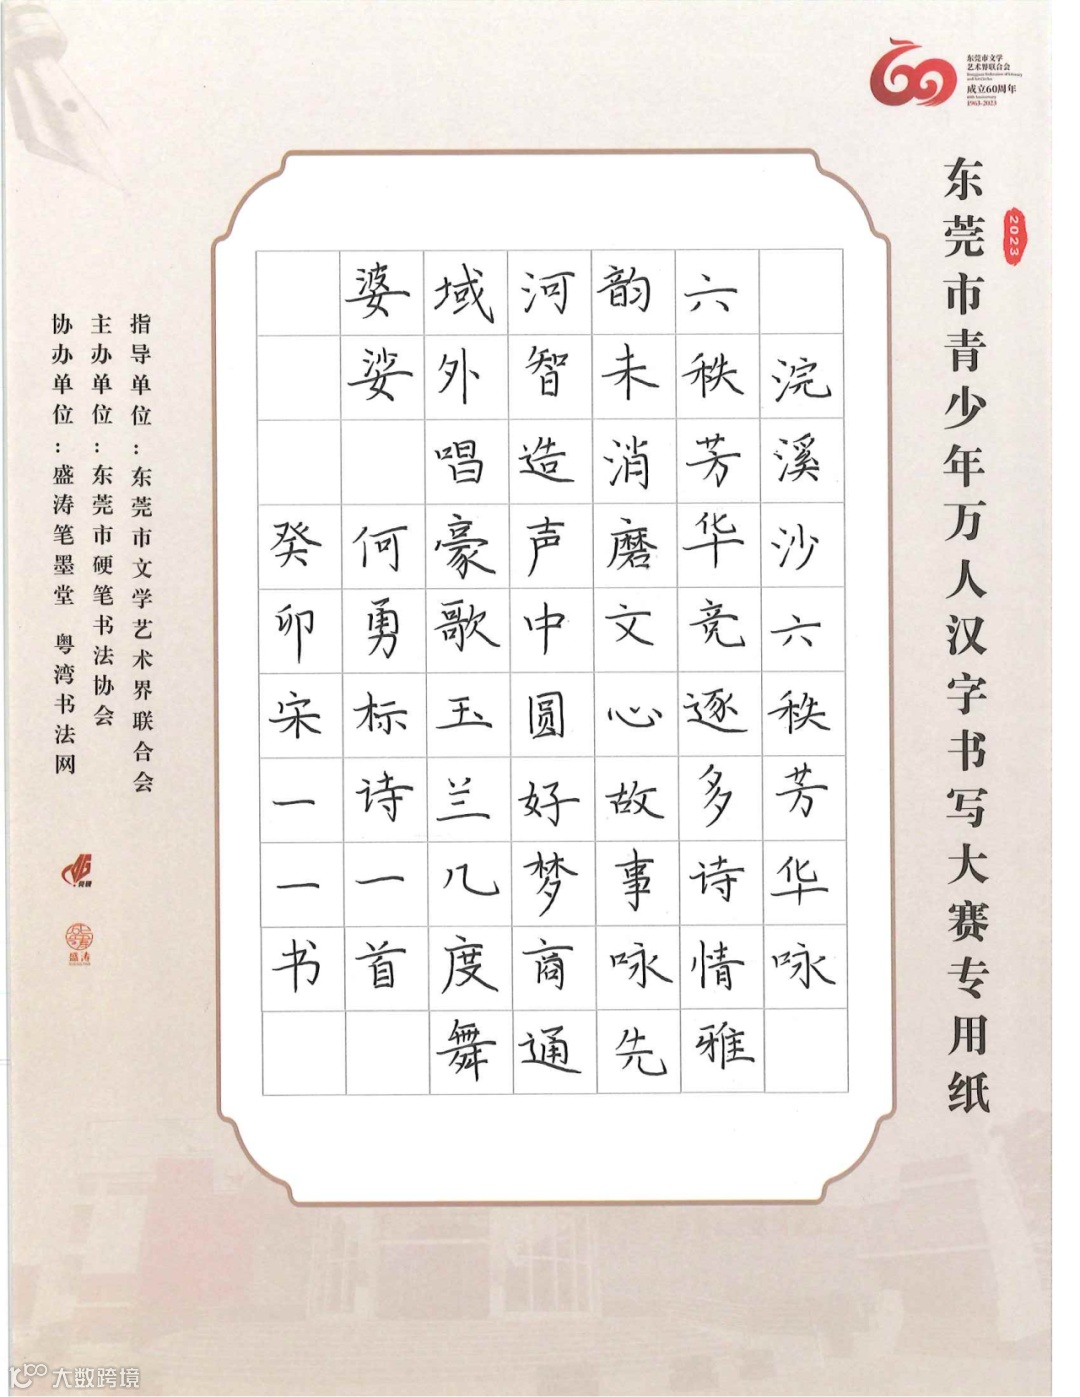 东莞市文学
艺术界联合会
成立60周年
1963-2023
东莞市青少年万人汉字书写大赛专用纸
2023
浣溪沙六秩芳华咏
六秩芳华竞逐多诗情雅
韵未消磨文心故事咏先
河智造声中圆好梦商通
域外唱豪歌玉兰几度舞
婆娑 何勇标诗一首
癸卯宋一一书
指导单位：东莞市文学艺术界联合会
主办单位：东莞市硬笔书法协会
协办单位：盛涛笔墨堂 粤湾书法网
盛涛
大数跨境